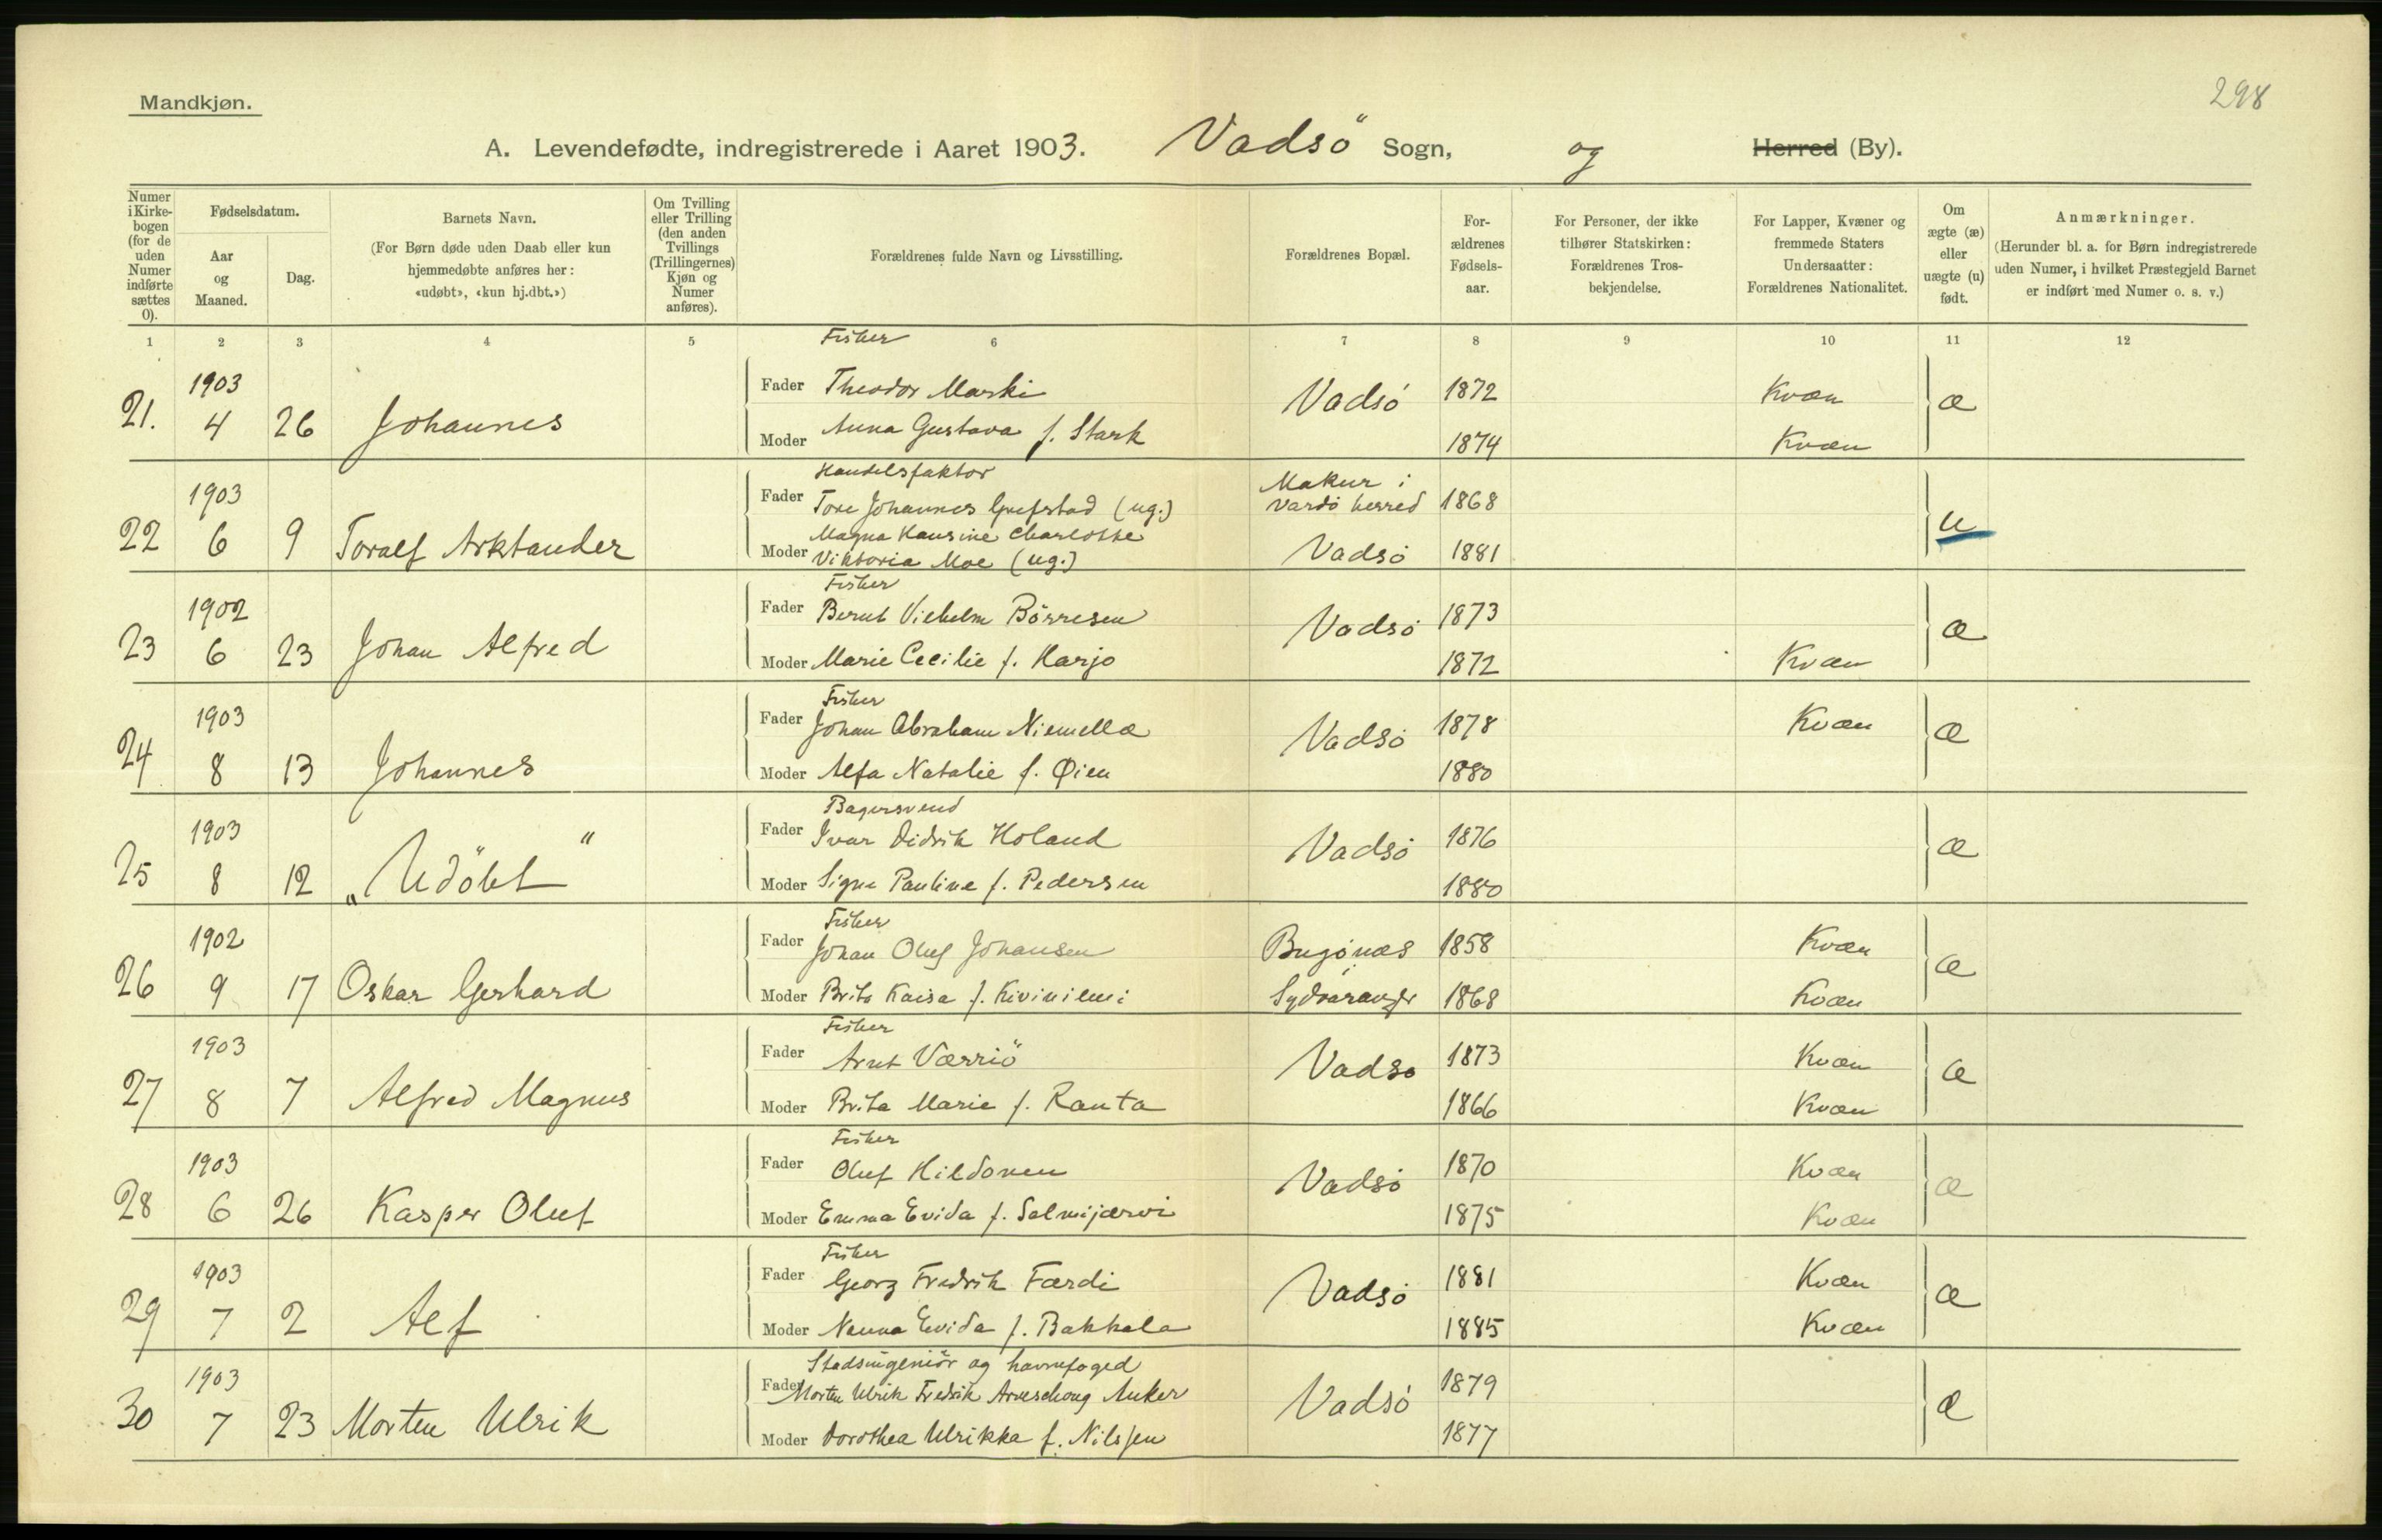 298
Mandkjøn.
A. Levendefødte, indregistrerede i Aaret 1903. Vadsö Sogn, og Herred (By).
Numer i Kirkebogen (for de uden Numer indførte sættes 0).
Fødselsdatum.
Aar og Maaned.
Dag.
Barnets Navn.
(For Børn døde uden Daab eller kun hjemmedøbte anføres her: «udøbt», «kun hj.dbt.»)
Om Tvilling eller Trilling (den anden Tvillings (Trillingernes) Kjøn og Numer anføres).
Forældrenes fulde Navn og Livsstilling.
Forældrenes Bopæl.
Forældrenes Fødselsaar.
For Personer, der ikke tilhører Statskirken: Forældrenes Trosbekjendelse.
For Lapper, Kvæner og fremmede Staters Undersaatter: Forældrenes Nationalitet.
Om ægte (æ) eller uægte (u) født.
Anmærkninger.
(Herunder bl. a. for Børn indregistrerede uden Numer, i hvilket Præstegjeld Barnet er indført med Numer o. s. v.)
1 2 3 4 5 6 7 8 9 10 11 12
Fisker
21. 1903 4 26 Johannes
Fader Theodor Marki Vadsö 1872 Kvæn æ
Moder Anna Gustava f. Stark 1874 Kvæn
Handelsfaktor
22 1903 6 9 Toralf Arktander
Fader Tore Johannes Grefstad (ug.) Makur i Vardö herred 1868 u
Moder Magna Hansine Charlotte Viktoria Moe (ug.) Vadsö 1881
Fisker
23 1902 6 23 Johan Alfred
Fader Bernt Vilhelm Börresen Vadsö 1873 æ
Moder Marie Cecilie f. Harjo 1872 Kvæn
Fisker
24 1903 8 13 Johannes
Fader Johan Abraham Niemella Vadsö 1878 Kvæn æ
Moder Alfa Natalie f. Øien 1880
Bagersvend
25 1903 8 12 „Udöbt"
Fader Ivar Didrik Holand Vadsö 1876 æ
Moder Signe Pauline f. Pedersen 1880
Fisker
26 1902 9 17 Oskar Gerhard
Fader Johan Oluf Johansen Bugönæs 1858 Kvæn æ
Moder Brita Kaisa f. Kiviniemi Sydvaranger 1868 Kvæn
Fisker
27 1903 8 7 Alfred Magnus
Fader Arnt Værriö Vadsö 1873 Kvæn æ
Moder Brita Marie f. Ranta 1866 Kvæn
Fisker
28 1903 6 26 Kasper Oluf
Fader Oluf Hildonen Vadsö 1870 Kvæn æ
Moder Emma Evida f. Salmijærvi 1875 Kvæn
Fisker
29 1903 7 2 Alf
Fader Georg Fredrik Færdi Vadsö 1881 Kvæn æ
Moder Nanna Evida f. Bakkala 1885 Kvæn
Stadsingeniör og havnefoged
30 1903 7 23 Morten Ulrik
Fader Morten Ulrik Fredrik Anker Vadsö 1879 æ
Moder Dorothea Ulrikka f. Nilssen 1877